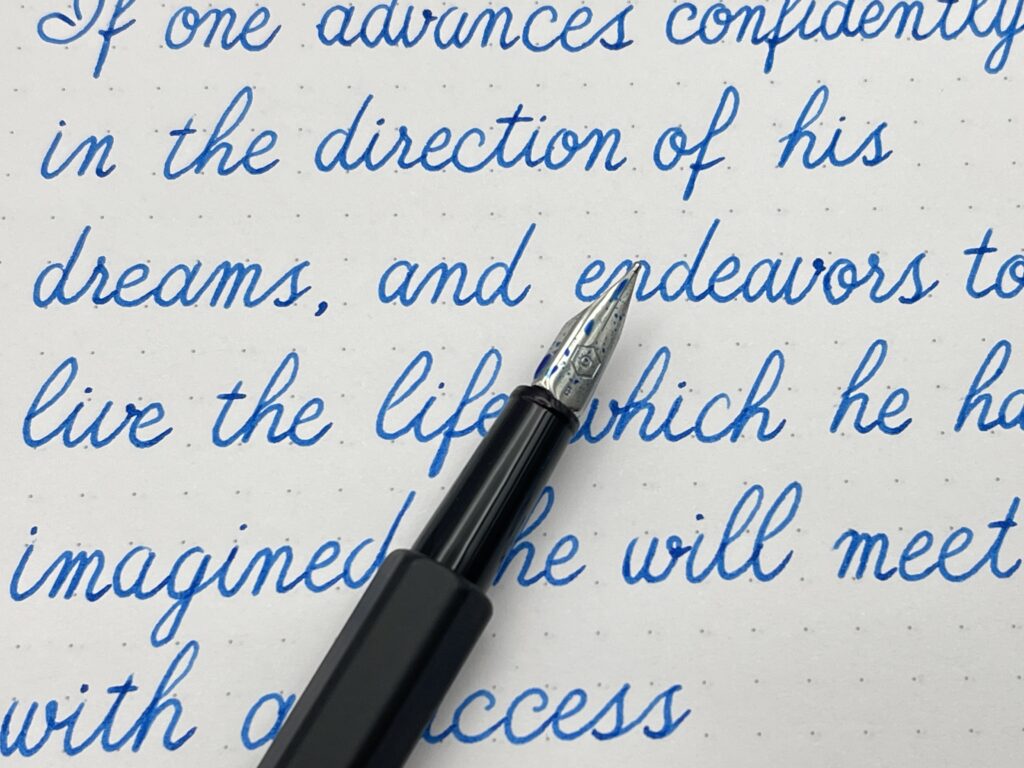 If one advances confidently
in the direction of his
dreams, and endeavors to
live the life which he ha
imagined he will meet
with a success